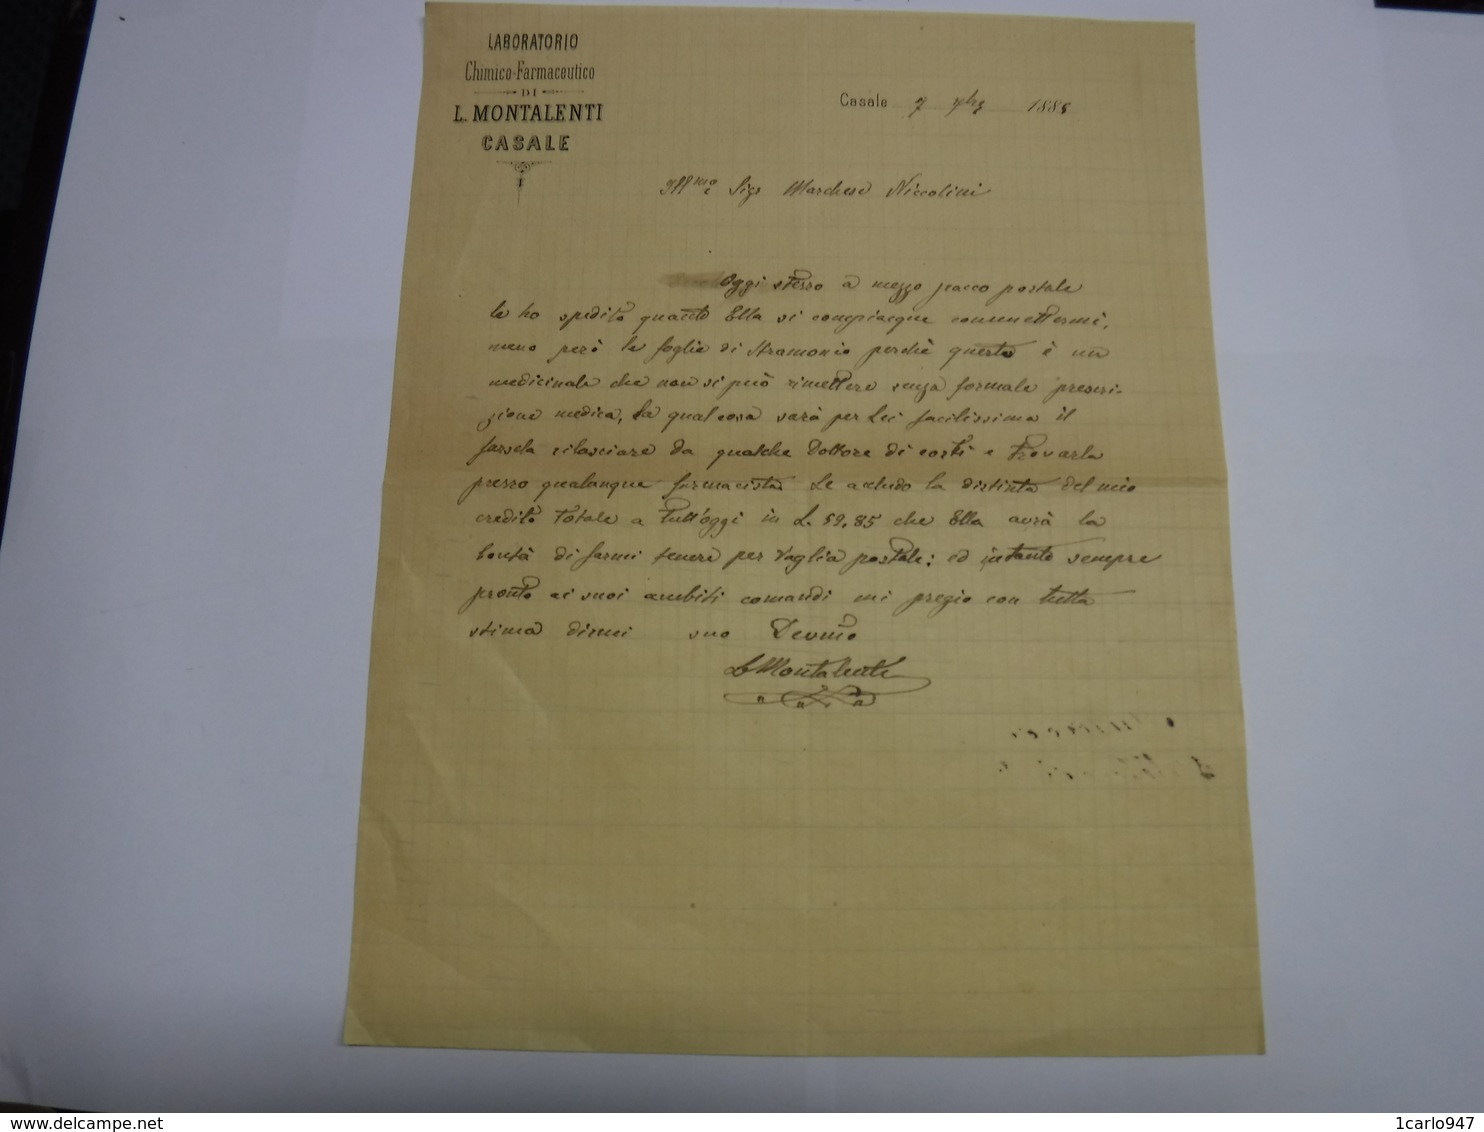 LABORATORIO
Chimico-Farmaceutico
DI
L. MONTALENTI
CASALE
Casale 7 7bre 1888
Illmo Sigr Marchese Niccolini
Oggi stesso a mezzo pacco postale
le ho spedito quanto Ella si compiacque commettermi,
meno però le foglie di Stramonio perchè questo è un
medicinale che non si può rimettere senza formale prescri-
zione medica, la qual cosa sarà per Lei facilissima il
farsela rilasciare da qualche Dottore di costì e trovarla
presso qualunque farmacista. Le accludo la distinta del mio
credito totale a tutt'oggi in L. 59.85 che Ella avrà la
bontà di farmi tenere per vaglia postale: ed intanto sempre
pronto ai suoi ambiti comandi mi pregio con tutta
stima dirmi suo Devmo
L Montalenti
delcampe.net
1carlo947